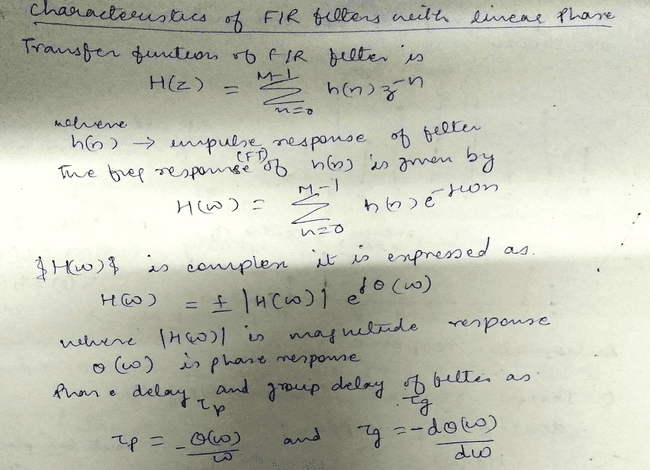 Characteristics of FIR filters with linear Phase
Transfer function of FIR filter is
H(z) = M-1 Σ n=0 h(n) z^-n
where
h(n) → impulse response of filter
The freq response (FT) of h(n) is given by
H(ω) = M-1 Σ n=0 h(n) e^-jωn
H(ω) is complex it is expressed as.
H(ω) = ± |H(ω)| e^jθ(ω)
where |H(ω)| is magnitude response
θ(ω) is phase response
Phase delay τp and group delay of filter as τg
τp = -θ(ω)/ω and τg = -dθ(ω)/dω